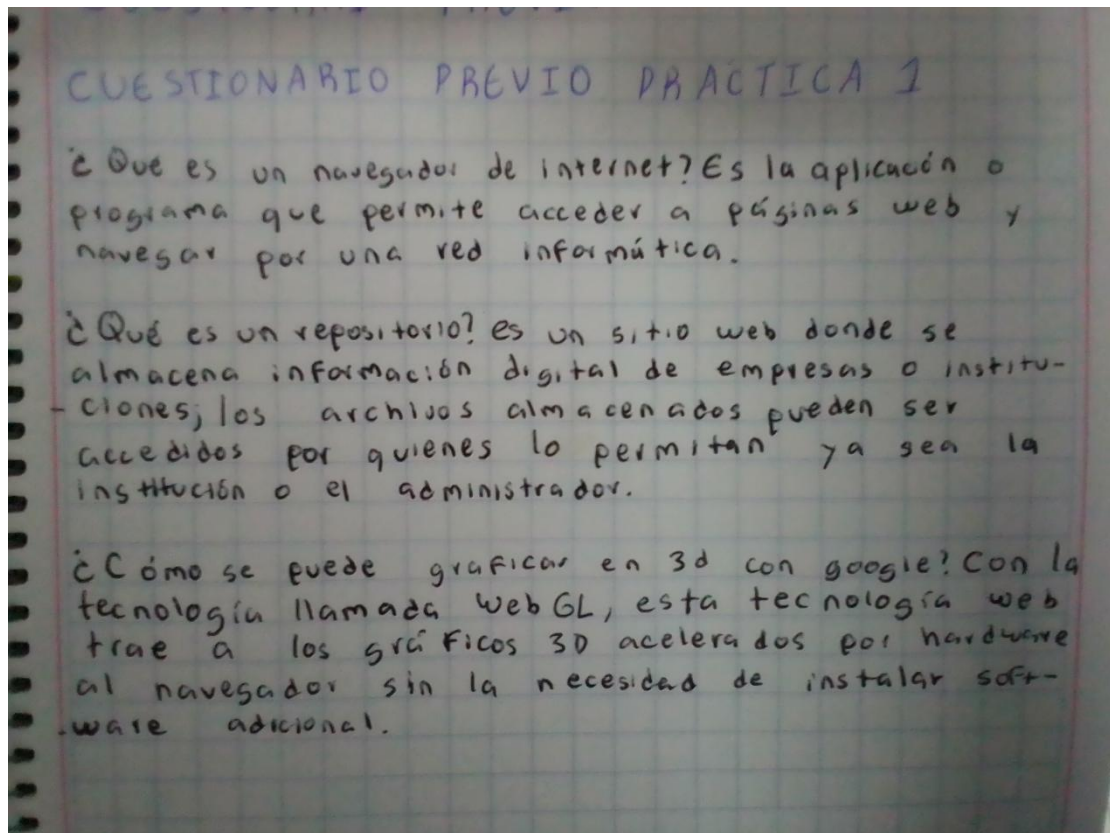 CUESTIONARIO PREVIO PRACTICA 1
¿Que es un navegador de internet? Es la aplicación o
programa que permite acceder a páginas web y
navegar por una red informática.
¿Qué es un repositorio? es un sitio web donde se
almacena información digital de empresas o institu-
-ciones; los archivos almacenados pueden ser
accedidos por quienes lo permitan ya sea la
institución o el administrador.
¿Cómo se puede graficar en 3d con google? Con la
tecnología llamada WebGL, esta tecnología web
trae a los gráficos 3D acelerados por hardware
al navegador sin la necesidad de instalar soft-
-ware adicional.